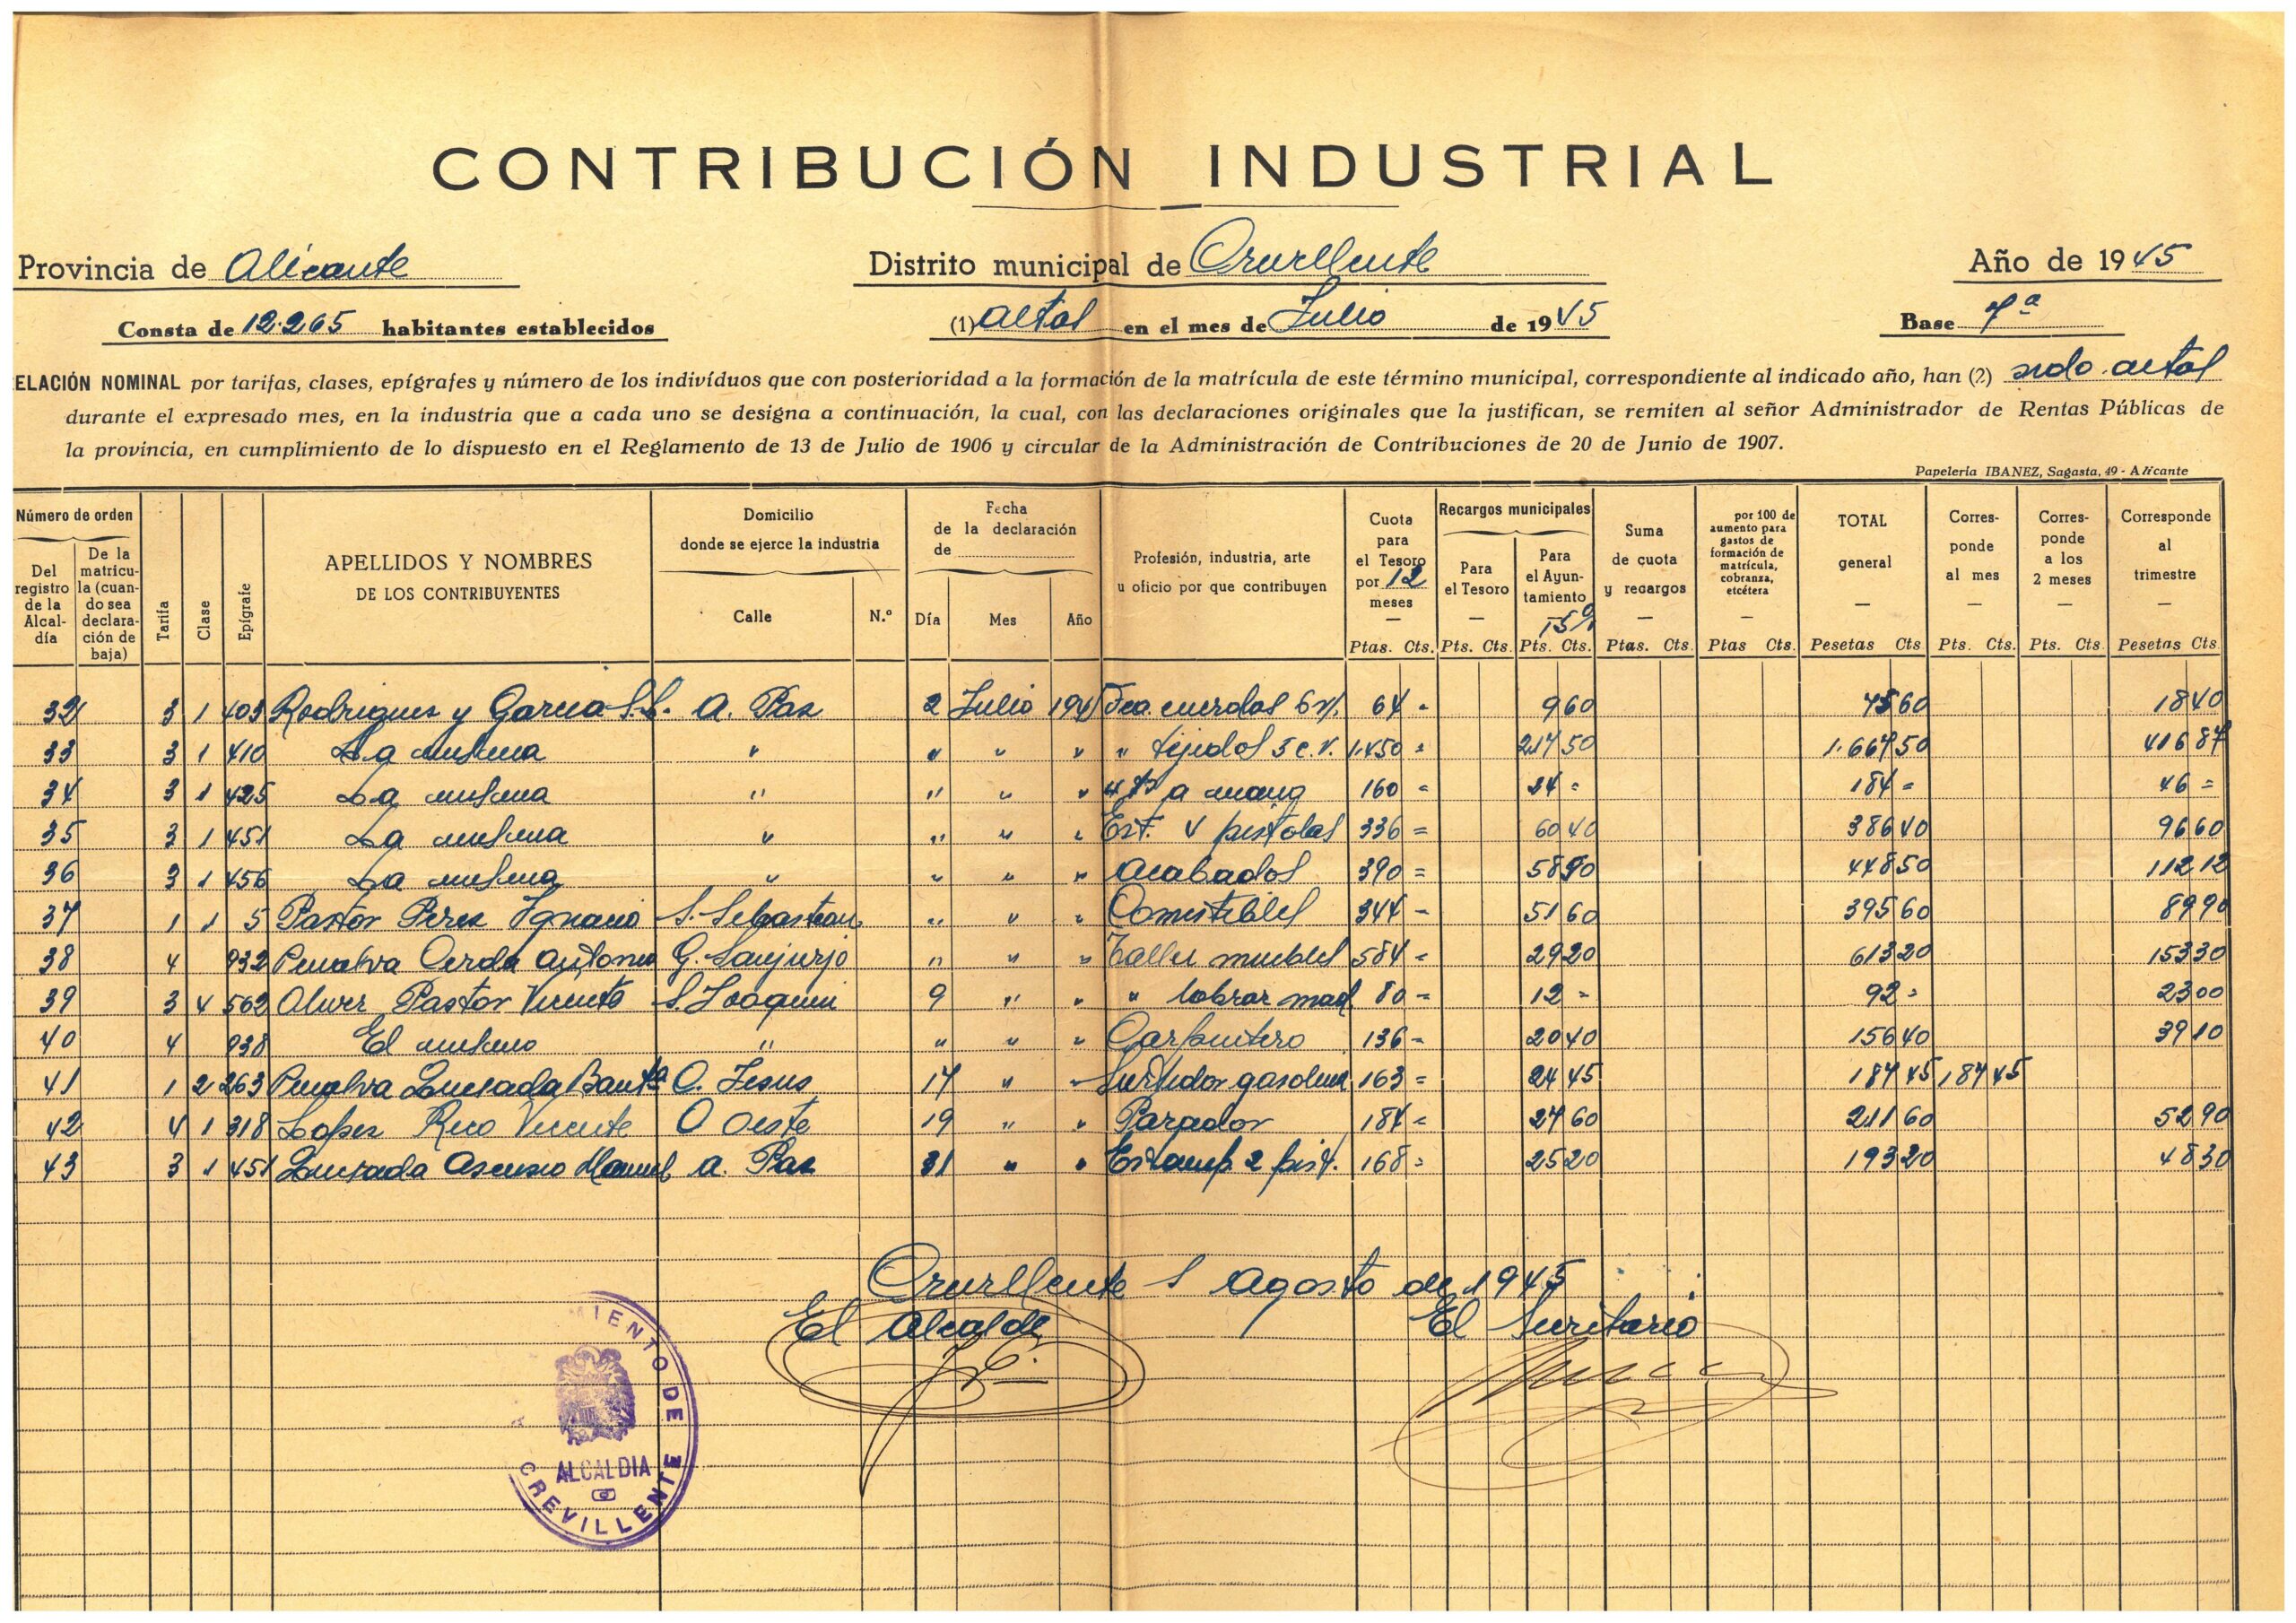 CONTRIBUCIÓN INDUSTRIAL
Provincia de Alicante Distrito municipal de Crevillente Año de 1945
Consta de 12.265 habitantes establecidos (1) altas en el mes de Julio de 1945 Base 7ª
ELACIÓN NOMINAL por tarifas, clases, epígrafes y número de los indivíduos que con posterioridad a la formación de la matrícula de este término municipal, correspondiente al indicado año, han (2) sido altas
durante el expresado mes, en la industria que a cada uno se designa a continuación, la cual, con las declaraciones originales que la justifican, se remiten al señor Administrador de Rentas Públicas de
la provincia, en cumplimiento de lo dispuesto en el Reglamento de 13 de Julio de 1906 y circular de la Administración de Contribuciones de 20 de Junio de 1907.
Papelería IBANEZ, Sagasta, 49 - Alicante
Número de orden
Del registro de la Alcal-día
De la matricu-la (cuan-do sea declara-ción de baja)
Tarifa
Clase
Epígrafe
APELLIDOS Y NOMBRES
DE LOS CONTRIBUYENTES
Domicilio
donde se ejerce la industria
Calle N.º
Fecha
de la declaración
de
Día Mes Año
Profesión, industria, arte
u oficio por que contribuyen
Cuota para el Tesoro por 12 meses — Ptas. Cts.
Recargos municipales
Para el Tesoro — Pts. Cts.
Para el Ayun-tamiento 15% Pts. Cts.
Suma de cuota y recargos — Ptas. Cts.
por 100 de aumento para gastos de formación de matrícula, cobranza, etcétera — Ptas Cts.
TOTAL general — Pesetas Cts
Corres-ponde al mes — Pts. Cts.
Corres-ponde a los 2 meses — Pts. Cts.
Corresponde al trimestre — Pesetas Cts
32 3 1 403 Rodriguez y Garcia S.L. A. Paz 2 Julio 1945 Fca. cuerdas 64 - 9 60 60 18 40
33 3 1 410 La misma " " " " " tejidos 5 c.v. 1.450 = 217 50 1.667 50 416 87
34 3 1 425 La misma " " " " a mang 160 = 24 = 184 = 46 =
35 3 1 451 La misma " " " " Est. 4 pistolas 336 = 60 40 386 40 96 60
36 3 1 456 La misma " " " " Acabados 390 = 58 50 448 50 112 12
37 1 1 5 Pastor Perez Ignacio S. Sebastian " " " Comestibles 344 - 51 60 395 60 89 90
38 4 932 Penalva Cerda Antonio G. Sanjurjo " " " Taller muebles 584 = 29 20 613 20 153 30
39 3 4 562 Oliver Pastor Vicente S. Joaquin 9 " " " labrar mad 80 = 12 = 92 = 23 00
40 4 938 El mismo " " " " Carpintero 136 - 20 40 156 40 39 10
41 1 2 263 Penalva Lousada Bautª C. Jesus 17 " " Surtidor gasolina 163 = 24 45 187 45 187 45
42 4 1 318 Lopez Rico Vicente C Oeste 19 " " Parador 184 = 27 60 211 60 52 90
43 3 1 451 Lousada Asensio Manuel A. Paz 31 " " Estamp. 2 pist. 168 = 25 20 193 20 48 30
Crevillente 1 Agosto de 1945
El Alcalde El Secretario
MIENTO DE CREVILLENTE
ALCALDIA